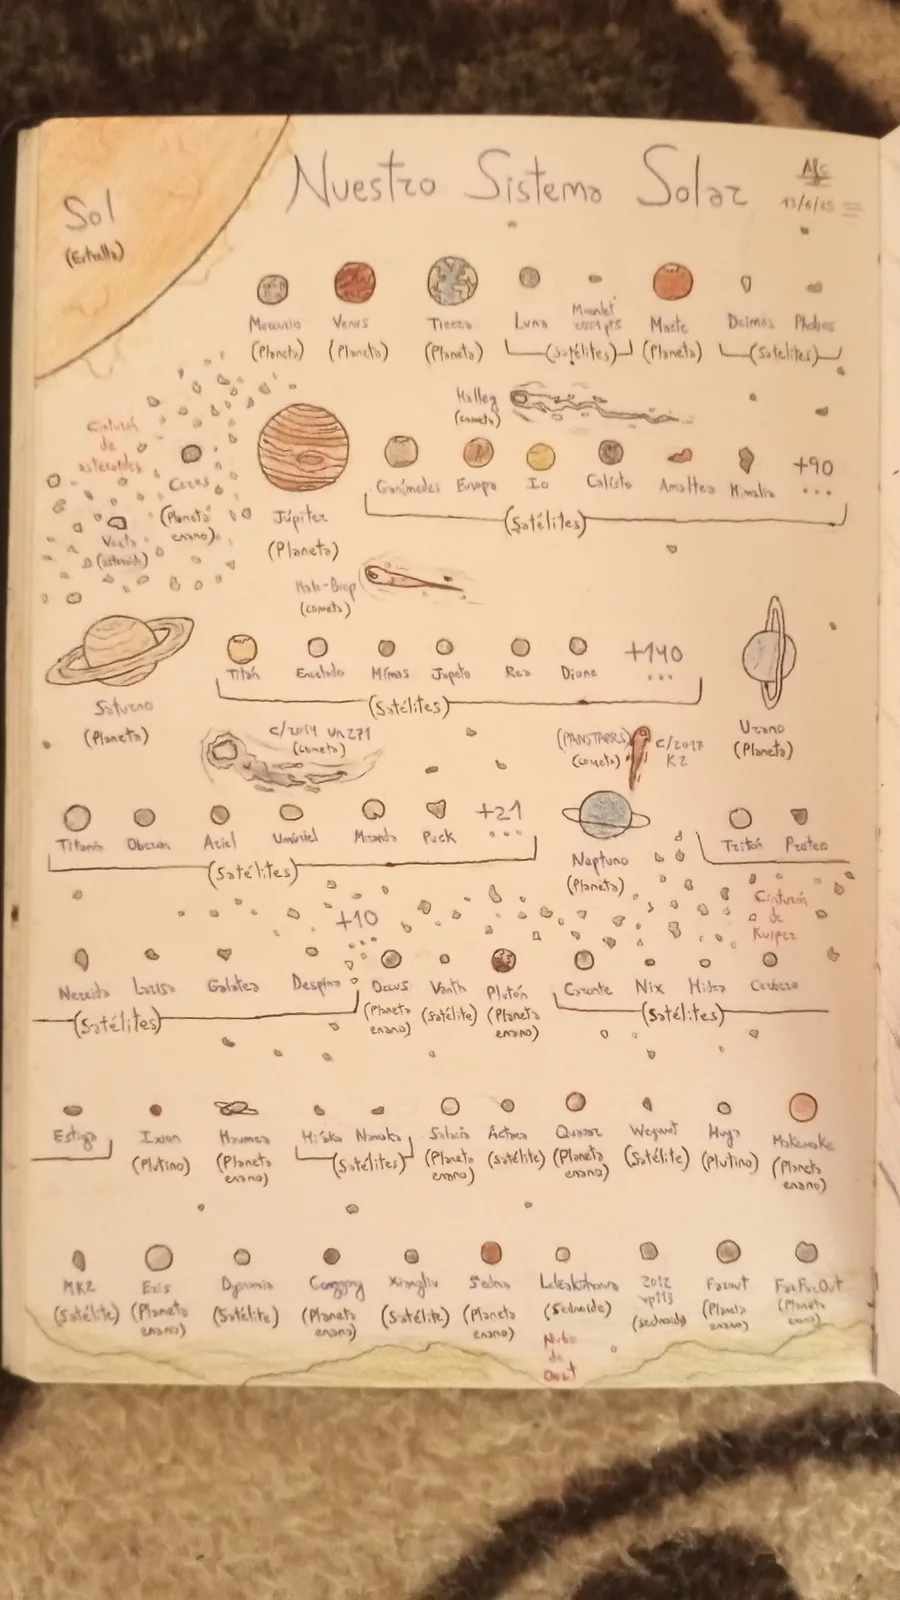 Nuestro Sistema Solar
13/6/25
Sol
(Estrella)
Mercurio Venus Tierra Luna Moonlet Marte Deimos Phobos
(Planeta) (Planeta) (Planeta) (Satélites) (Planeta) (Satélites)
Halley
(cometa)
Cinturón
de
asteroides
Ceres
(Planeta
enano)
Vesta
(asteroide)
Júpiter
(Planeta)
Ganímedes Europa Io Calisto Amaltea Himalia +90
...
(Satélites)
Hale-Bop
(cometa)
Saturno
(Planeta)
Titán Encelado Mimas Japeto Rea Dione +140
...
(Satélites)
Urano
(Planeta)
C/2014 UN271
(cometa)
(PANSTARRS) C/2017
(cometa) K2
Titania Oberon Ariel Umbriel Miranda Puck +21
...
(Satélites)
Neptuno
(Planeta)
Tritón Proteo
Cinturón
de
Kuiper
+10
Nereida Larisa Galatea Despina
(Satélites)
Orcus Vanth Plutón Caronte Nix Hidra Cerbero
(Planeta enano) (Satélite) (Planeta enano) (Satélites)
Estigo Ixion Haumea Hi'aka Namaka Salacia Actaea Quaoar Weywot Huya Makemake
(Plutino) (Planeta enano) (Satélites) (Planeta enano) (Satélite) (Planeta enano) (Satélite) (Plutino) (Planeta enano)
MK2 Eris Dysnomia Gonggong Xiangliu Sedna Leleakuhonua 2012 VP113 Farout FarFarOut
(Satélite) (Planeta enano) (Satélite) (Planeta enano) (Satélite) (Planeta enano) (Sednoide) (sednoide) (Planeta enano) (Planeta enano)
Nube
de
Oort